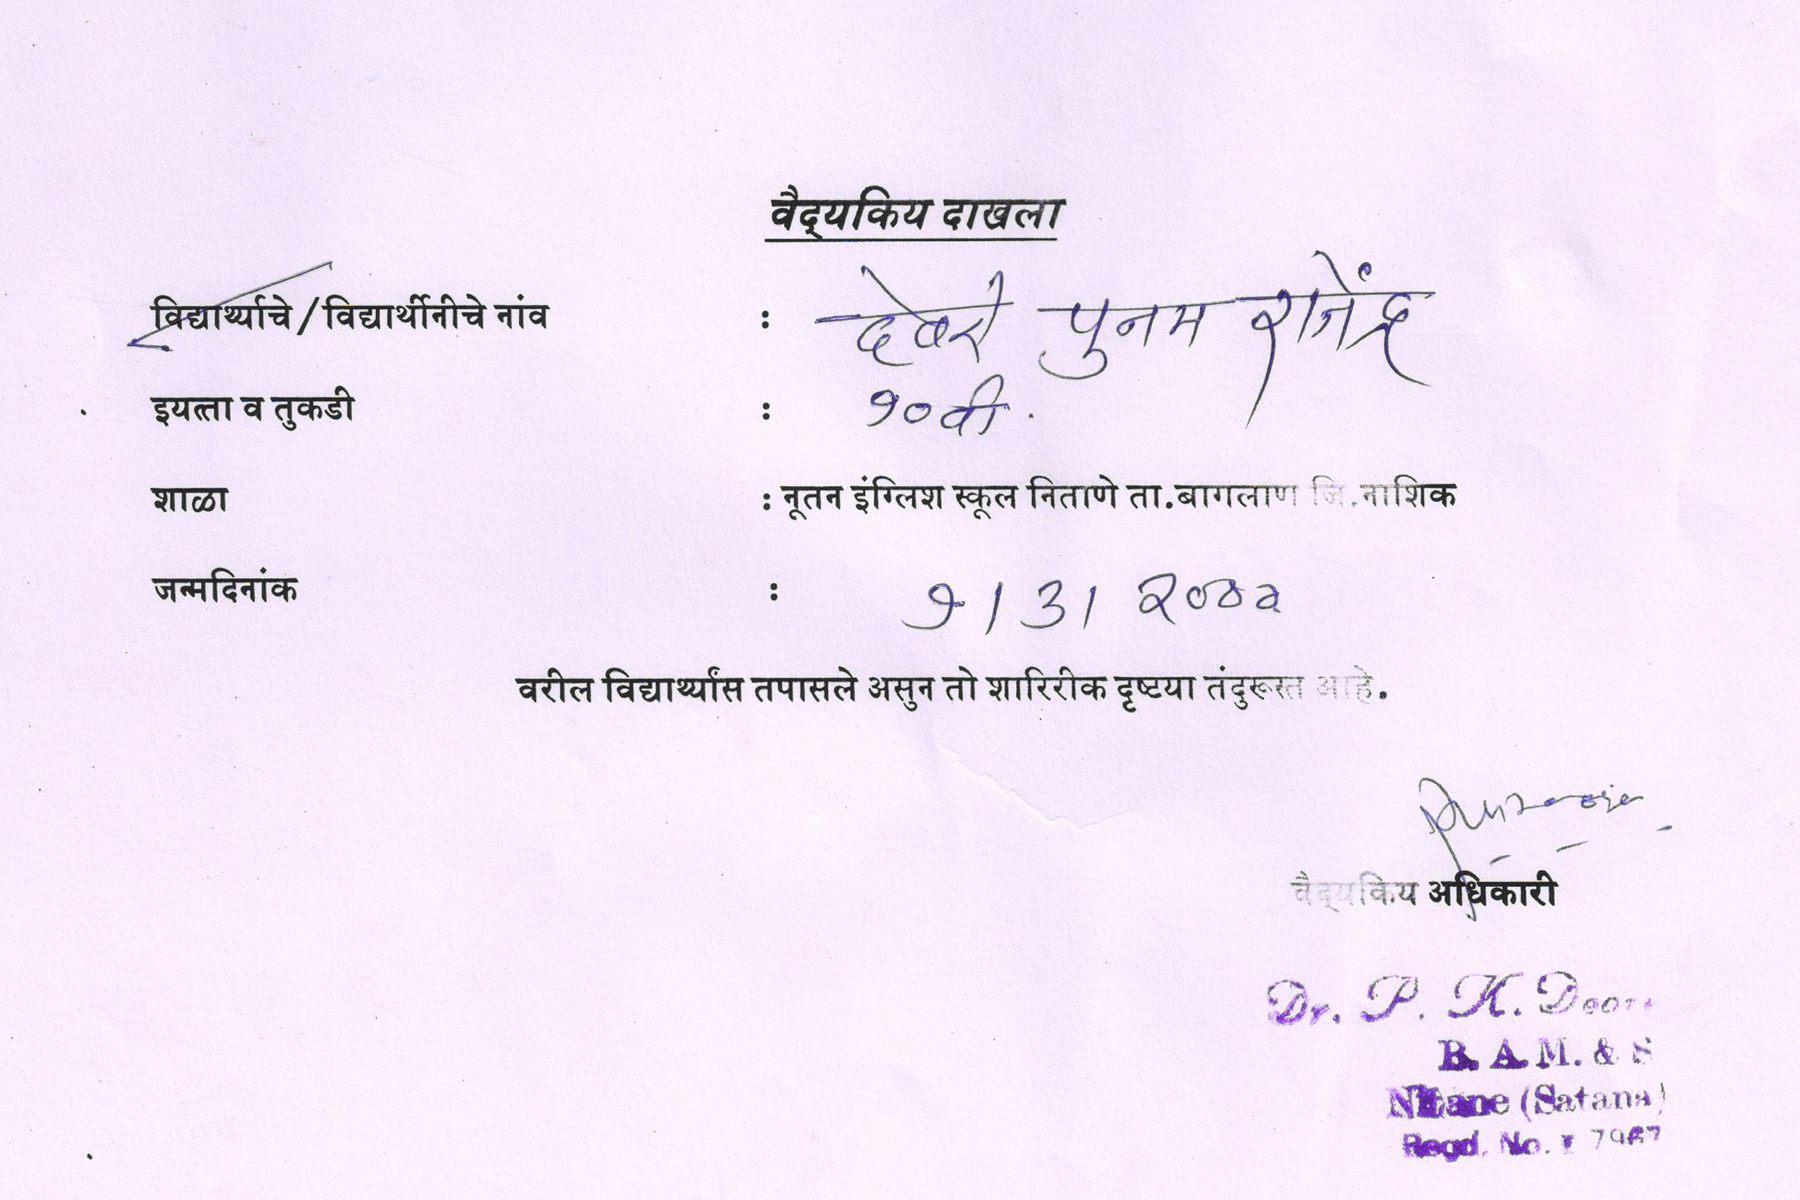 वैद्यकिय दाखला
विद्यार्थ्याचे / विद्यार्थीनीचे नांव : देवरे पुनम राजेंद्र
इयत्ता व तुकडी : १०वी.
शाळा : नूतन इंग्लिश स्कूल निताणे ता.बागलाण जि.नाशिक
जन्मदिनांक : १ / ३ / २०००
वरील विद्यार्थ्यांस तपासले असुन तो शारिरीक दृष्टया तंदुरूस्त आहे.
वैद्यकिय अधिकारी
Dr. P. K.
B. A. M. & S
Nitane (Satana)
Regd. No. I 7967